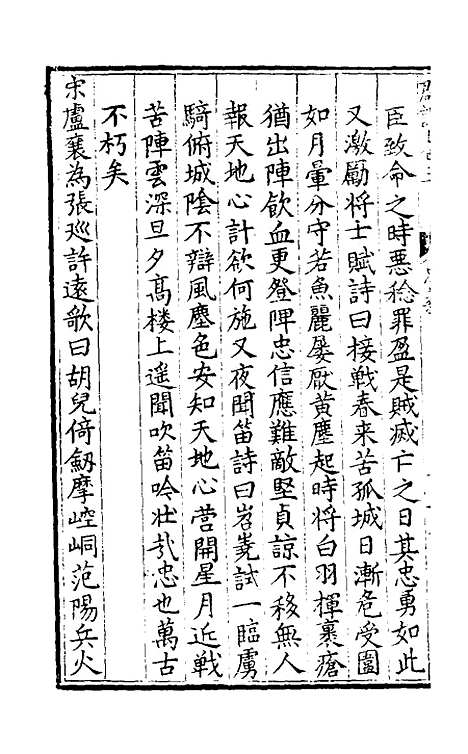 臣致命之時惡稔罪盈是賊滅亡之日其忠勇如此
又激勵將士賦詩曰接戰春来苦孤城日漸危受圍
如月暈分守若魚麗屡厭黄塵起時将白羽揮裹瘡
猶出陣飲血更登陴忠信應難敵堅貞諒不移無人
報天地心計欲何施又夜聞笛詩曰岧嶤試一臨虜
騎俯城陰不辯風塵色安知天地心營開星月近戦
苦陣雲深旦夕髙楼上遥聞吹笛吟壮哉忠也萬古
不朽矣
宋盧襄為張廵許遠歌曰胡兒倚劔摩崆峒范陽兵火